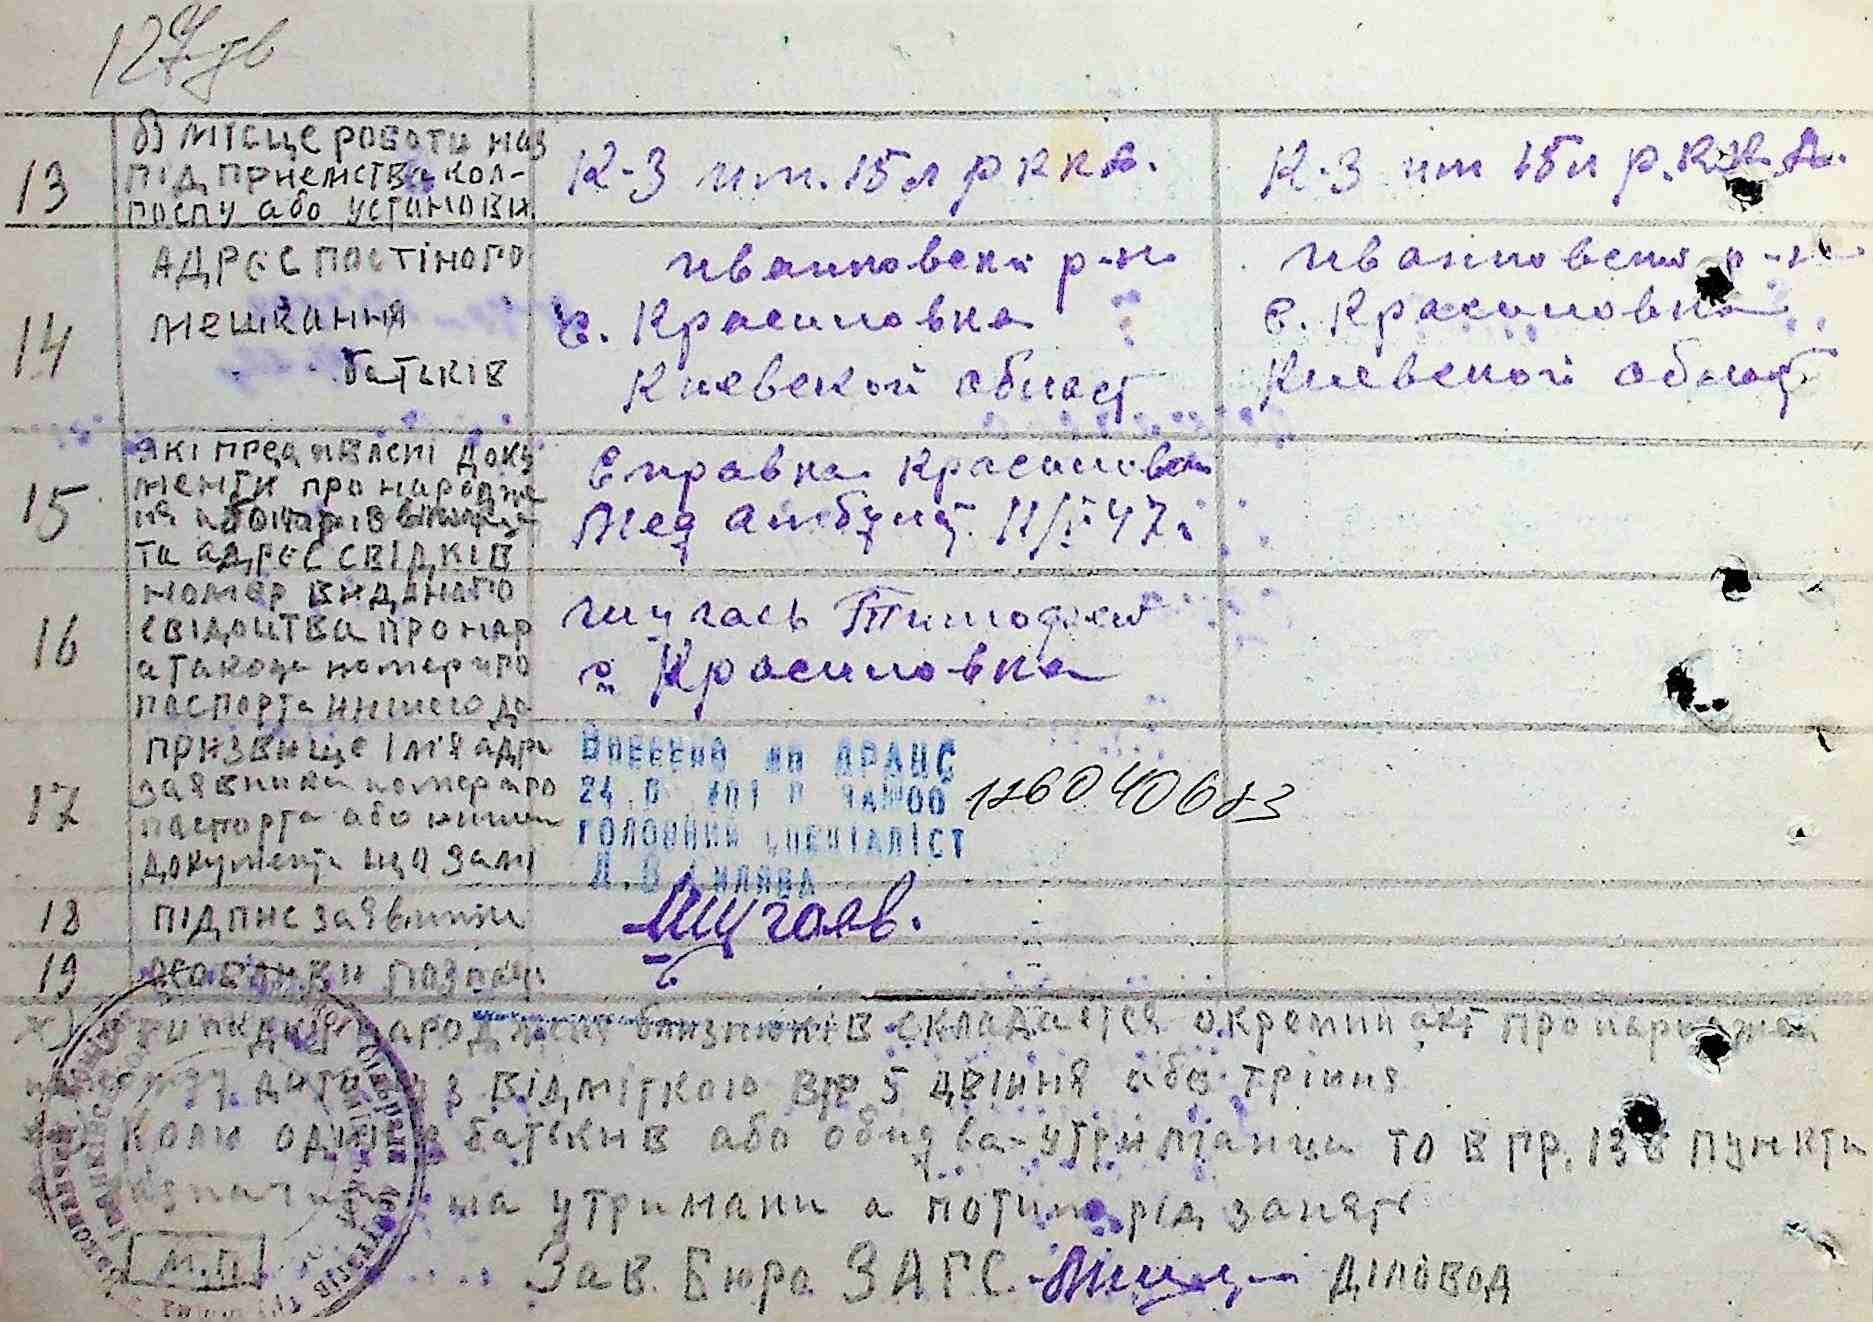 127 зв
13
б) місце роботи наз
підприємства кол-
госпу або установи
К-З им. 15 л РККА.
К-З им 15 л Р.К.К.А.
14
Адрес постіного
мешкання
батьків
Ивановский р-н
с. Красиловка
Киевской област
Ивановский р-н
с. Красиловка
Киевской област
15
які пред'явлені доку
менти про народже
та адрес свідків
Справка Красиловск
Мед амбулат. 11/II 47 г
16
номер виданого
свідоцтва про нар
а також номер його
паспорта иншого до
Тимофей
с. Красиловка
17
призвище ім'я адре
заявника номер його
паспорта або инши
документа що замі
Внесено до ДРАЦС
00 1260 40683
головний спеціаліст
18
підпис заявника
19
особливи познач
х) У випадкі народження близнюків складається окремий акт про народжен
дитину з відміткою в гр 5 двійня або трійня
Коли один з батьків або обидва-утриманци то в гр. 13 в пункти
на утримани а потим рід занять
М.П.
Зав. Бюро ЗАГС
Діловод